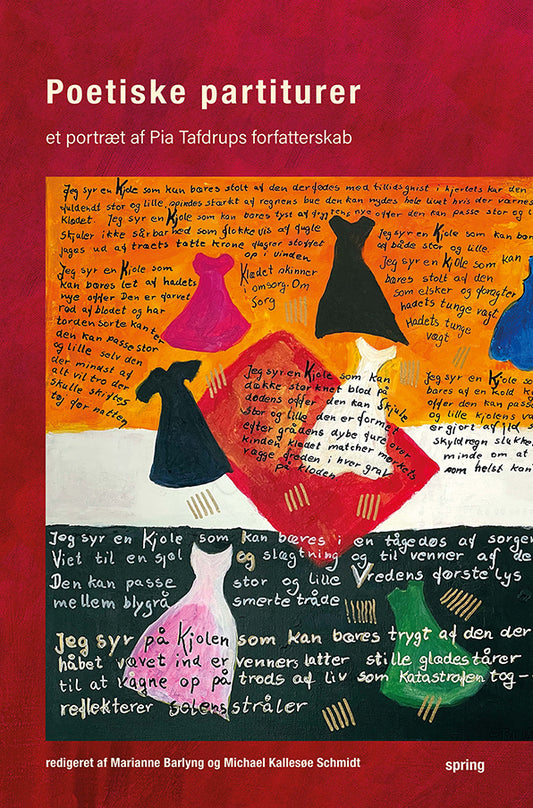 Poetiske partiturer
et portræt af Pia Tafdrups forfatterskab
Jeg syr en Kjole som kun bæres stolt af den der fødes med tillidsgnist i hjertets kar den
fuldendt stor og lille, spindes stærkt af regnens bue den kan nydes hele livet hvis der værnes
Klædet. Jeg syr en Kjole som kan bæres tyst af nye offer den kan passe stor og l
Skjuler ikke sårbarhed som flokkevis af fugle
jages ud af træets tætte krone flagrer stoffet
op i vinden
Jeg syr en Kjole som kan bær
af både stor og lille
Jeg syr en Kjole som
kan bæres let af hadets
nye offer Den er farvet
rød af blodet og har
torden sorte kanter
den kan passe stor
og lille selv den
der mindst af
alt vil tro der
skulle skiftes
tøj før natten
Klædet skinner
i omsorg. Om
Sorg
Jeg syr en Kjole som kan
bæres stolt af den
som elsker og foragter
hadets tunge vægt
Hadets tunge
vægt
Jeg syr en Kjole som kan
dække størknet blod på
dødens offer den kan skjule
stor og lille den er formet
efter grådens dybe fure over
kinden klædet matcher mørkets
vægge freden i hver grav
på kloden
Jeg syr en Kjole so
bæres af en kold
offer den kan passe
og lille kjolens va
er gjort af ild s
skyldregn slukke
minde om at
som helst kan
Jeg syr en Kjole som kan bæres i en tågedøs af sorgen
Viet til en sjæl og slægtning og til venner af de
Den kan passe stor og lille Vredens første lys
mellem blygrå smerte tråde
Jeg syr på Kjolen som kan bæres trygt af den der
håbet vævet ind er venners latter stille glædes tårer
til at vågne op på trods af liv som katastrofen tog -
reflekterer solens stråler
redigeret af Marianne Barlyng og Michael Kallesøe Schmidt
spring